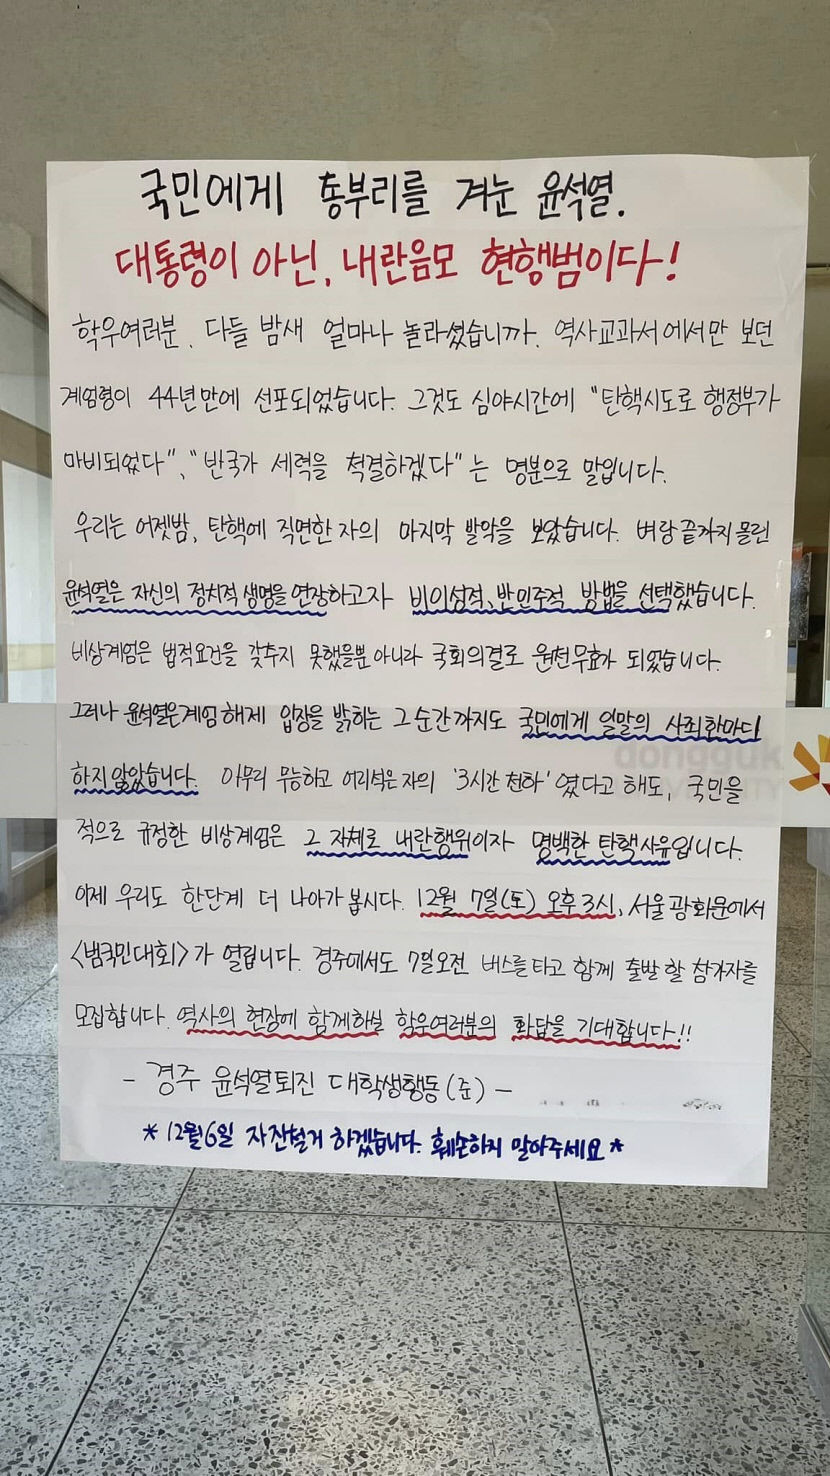 국민에게 총부리를 겨눈 윤석열.
대통령이 아닌, 내란음모 현행범이다!
학우여러분. 다들 밤새 얼마나 놀라셨습니까. 역사교과서에서만 보던
계엄령이 44년만에 선포되었습니다. 그것도 심야시간에 "탄핵시도로 행정부가
마비되었다", "반국가 세력을 척결하겠다"는 명분으로 말입니다.
우리는 어젯밤, 탄핵에 직면한 자의 마지막 발악을 보았습니다. 벼랑끝까지 몰린
윤석열은 자신의 정치적 생명을 연장하고자 비이성적, 반민주적 방법을 선택했습니다.
비상계엄은 법적요건을 갖추지 못했을뿐 아니라 국회의결로 원천무효가 되었습니다.
그러나 윤석열은 계엄 해제 입장을 밝히는 그 순간까지도 국민에게 일말의 사죄 한마디
하지 않았습니다. 아무리 무능하고 어리석은 자의 '3시간 천하'였다고 해도, 국민을
적으로 규정한 비상계엄은 그 자체로 내란행위이자 명백한 탄핵사유입니다.
이제 우리도 한단계 더 나아가 봅시다. 12월 7일(토) 오후3시, 서울 광화문에서
<범국민대회>가 열립니다. 경주에서도 7일오전 버스를 타고 함께 출발 할 참가자를
모집합니다. 역사의 현장에 함께하실 학우여러분의 화답을 기대합니다!!
- 경주 윤석열퇴진 대학생행동(준) -
* 12월6일 자진철거 하겠습니다. 훼손하지 말아주세요 *
dongguk
UNIVERSITY